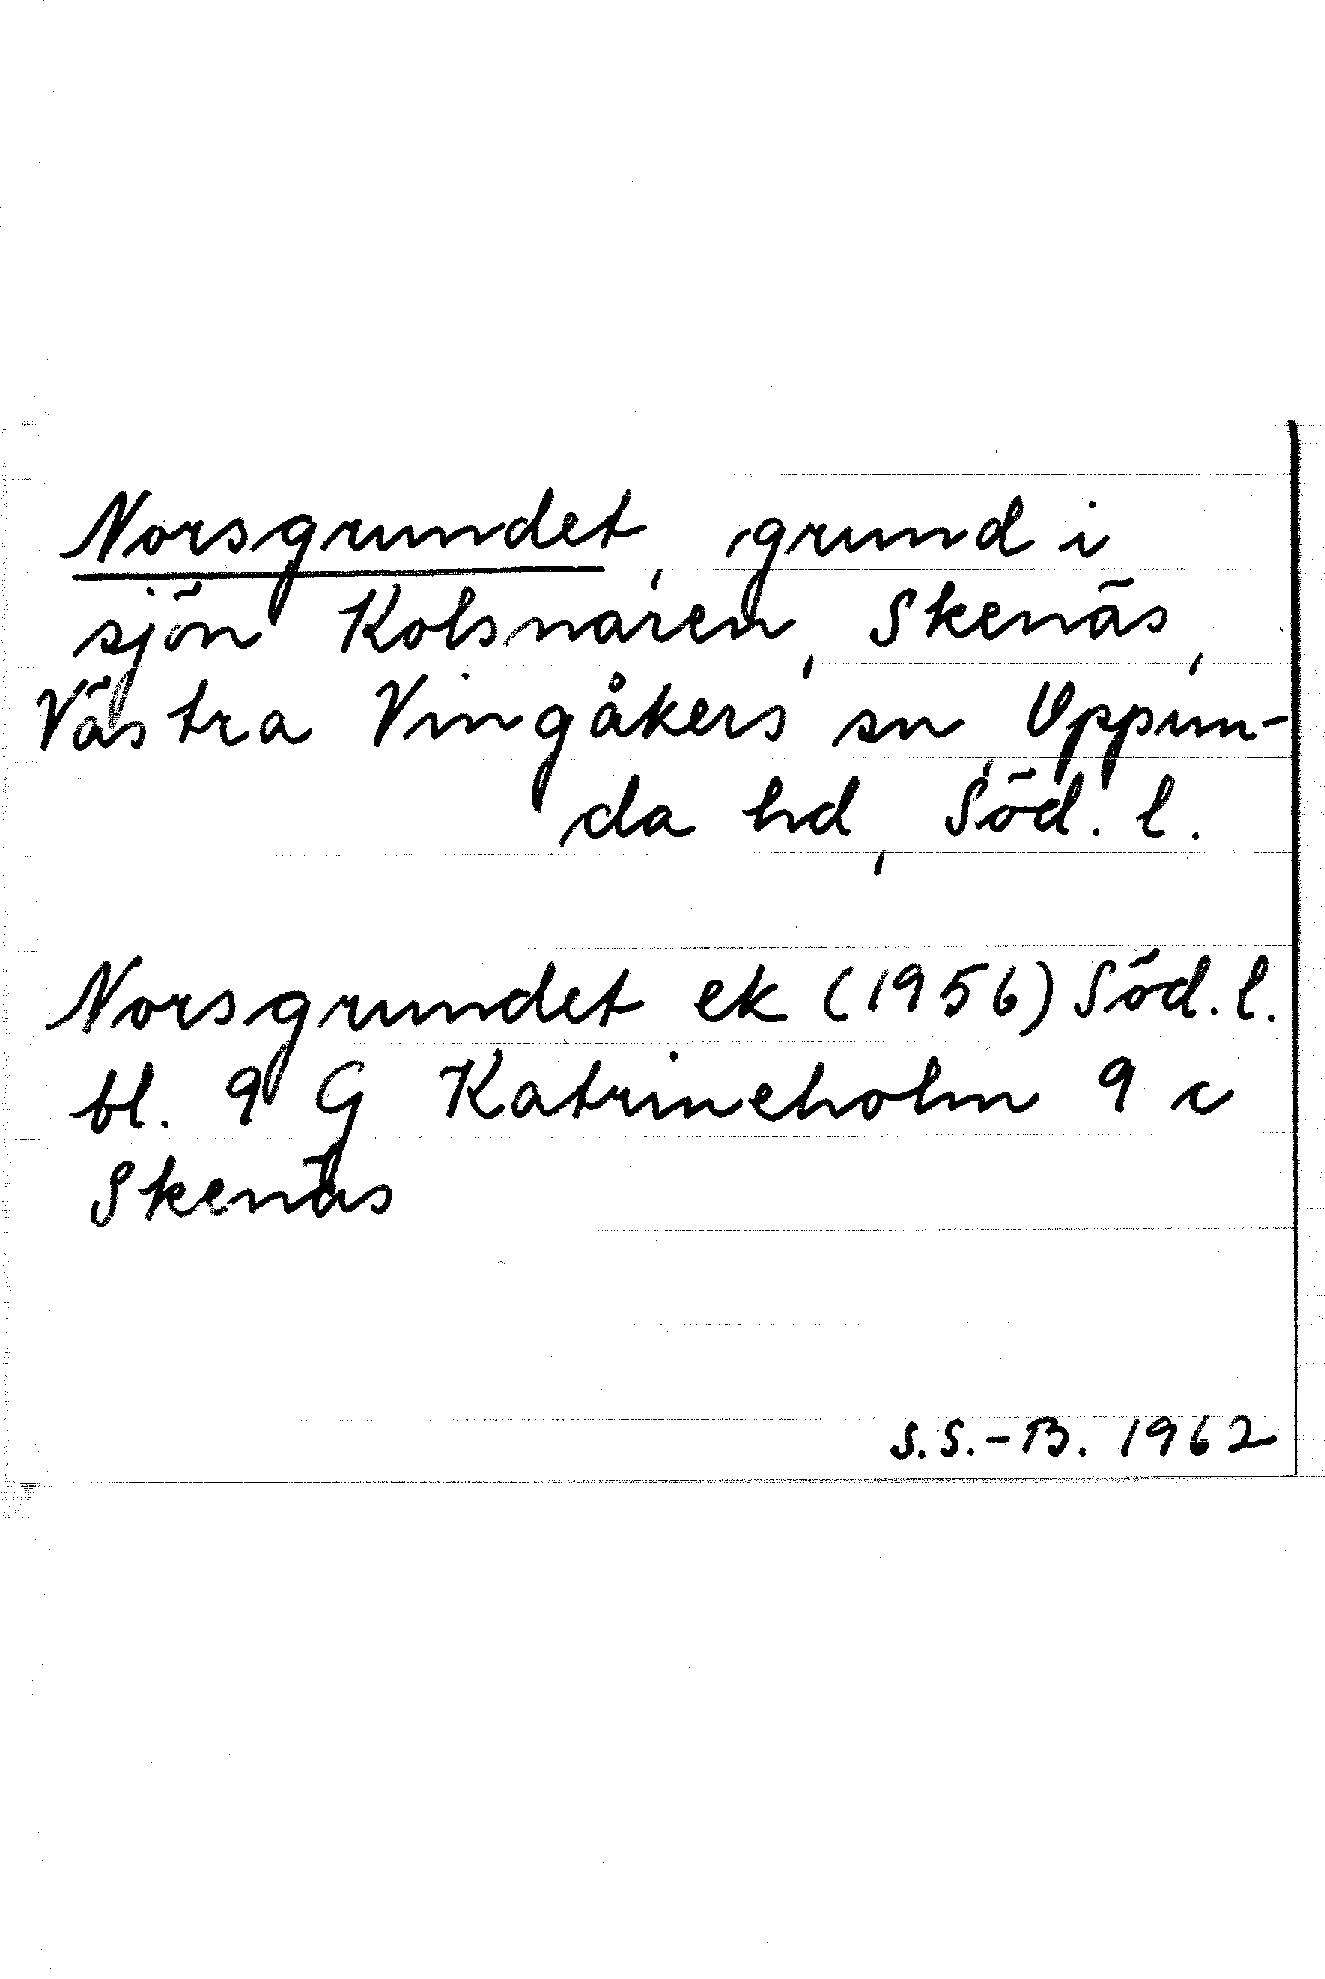 Norsgrundet, grund i
sjön Kolsnaren, Skenäs,
Västra Vingåkers sn, Oppun-
da hd, Söd. l.
Norsgrundet ek (1956) Söd. l.
bl. 9 G Katrineholm 9 c
Skenäs
S.S.-B. 1962